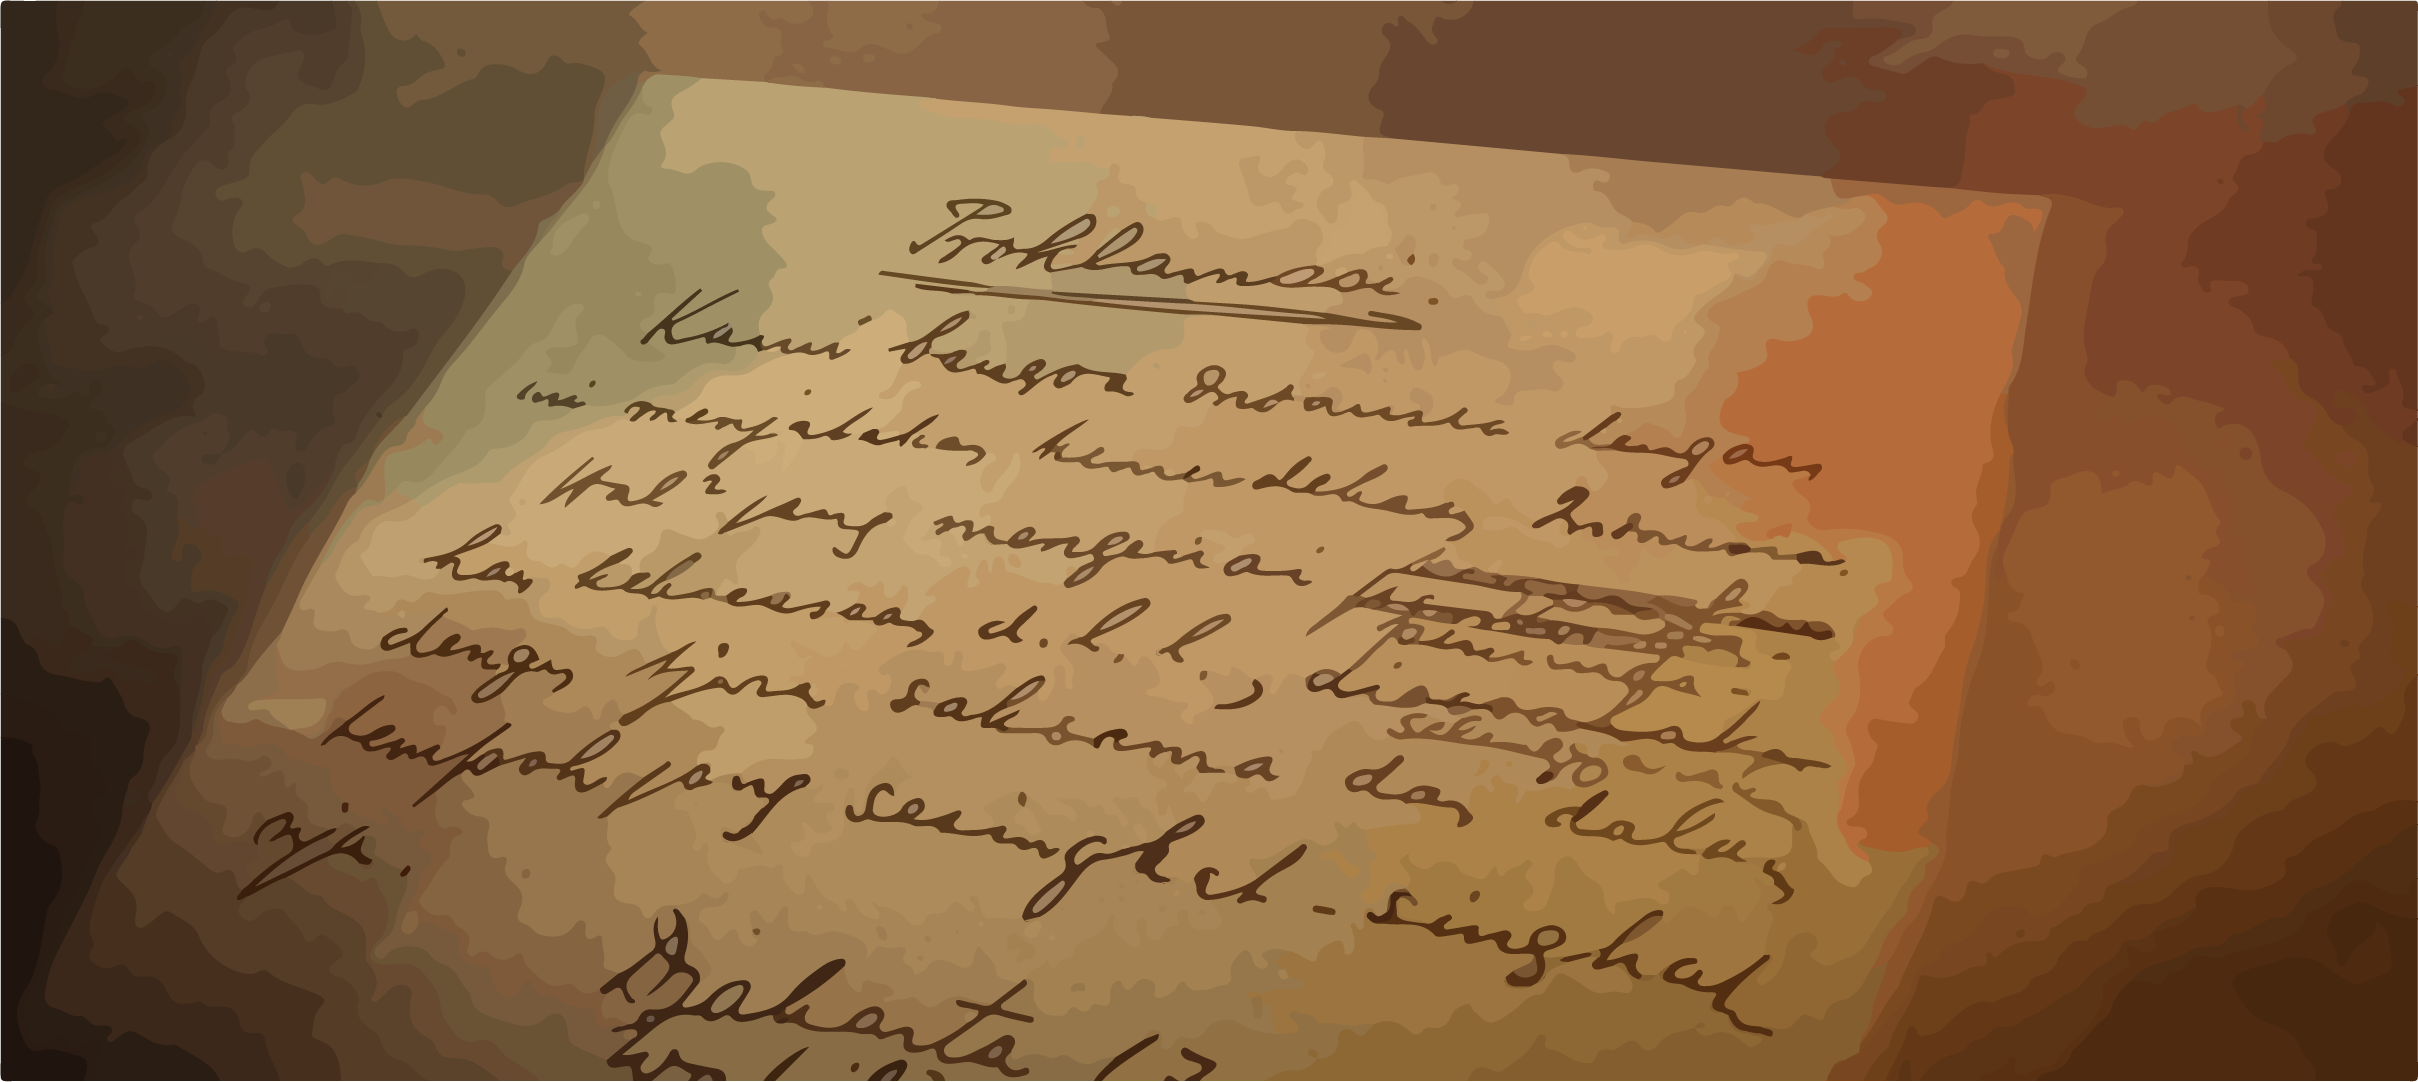 Proklamasi.
Kami bangsa Indonesia dengan
ini menjatakan kemerdekaan Indonesia.
Hal² jang mengenai
han kekoeasaan d.l.l.,
dengan tjara saksama dan dalam
tempoh jang sesingkat-singkat
nja.
Djakarta
17